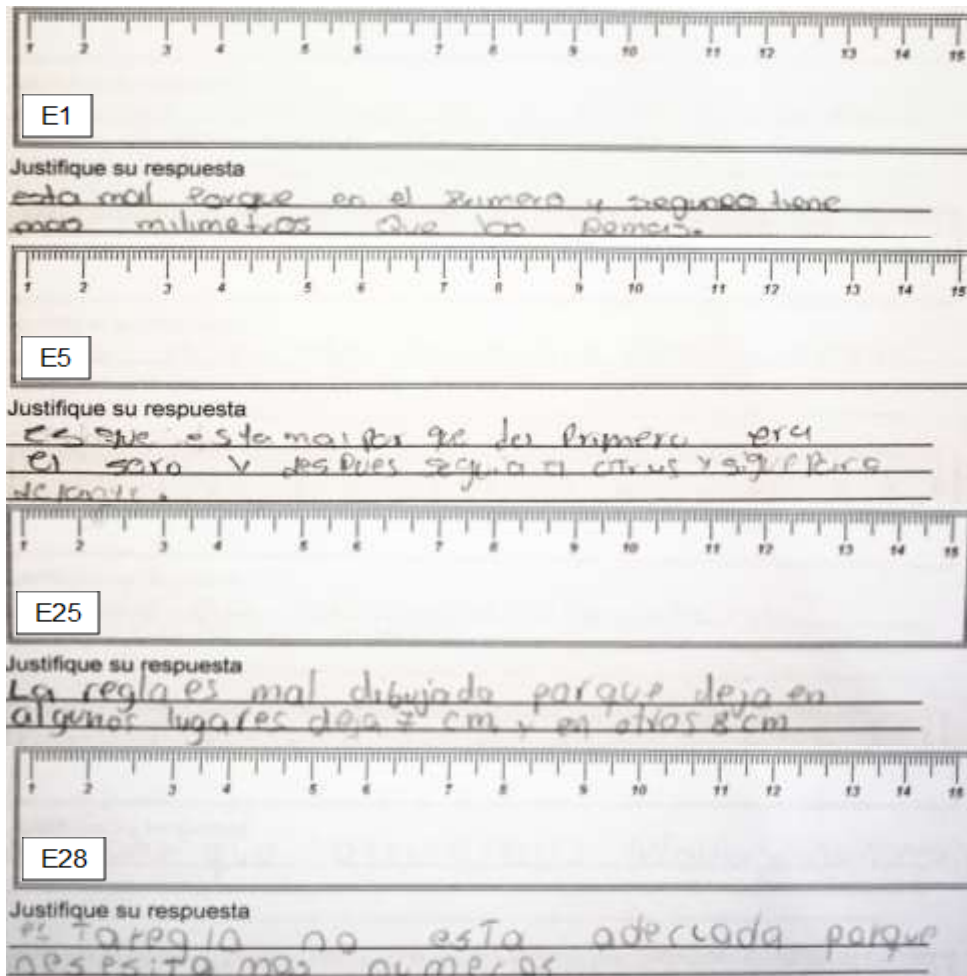 1 2 3 4 5 6 7 8 9 10 11 12 13 14 15
E1
Justifique su respuesta
esta mal Porque en el y segundo tiene
mas milimetros Que los Demais.
1 2 3 4 5 6 7 8 9 10 11 12 13 14 15
E5
Justifique su respuesta
es que esta mal por que del Primero era
el saro y des Pues seguia y sigue Para
1 2 3 4 5 6 7 8 9 10 11 12 13 14 15
E25
Justifique su respuesta
La regla es mal dibujada porque deja en
algunos lugares deja 7 cm y en otros 8 cm
1 2 3 4 5 6 7 8 9 10 11 12 13 14 15
E28
Justifique su respuesta
no esta adecuada porque
nesesita mas numeros